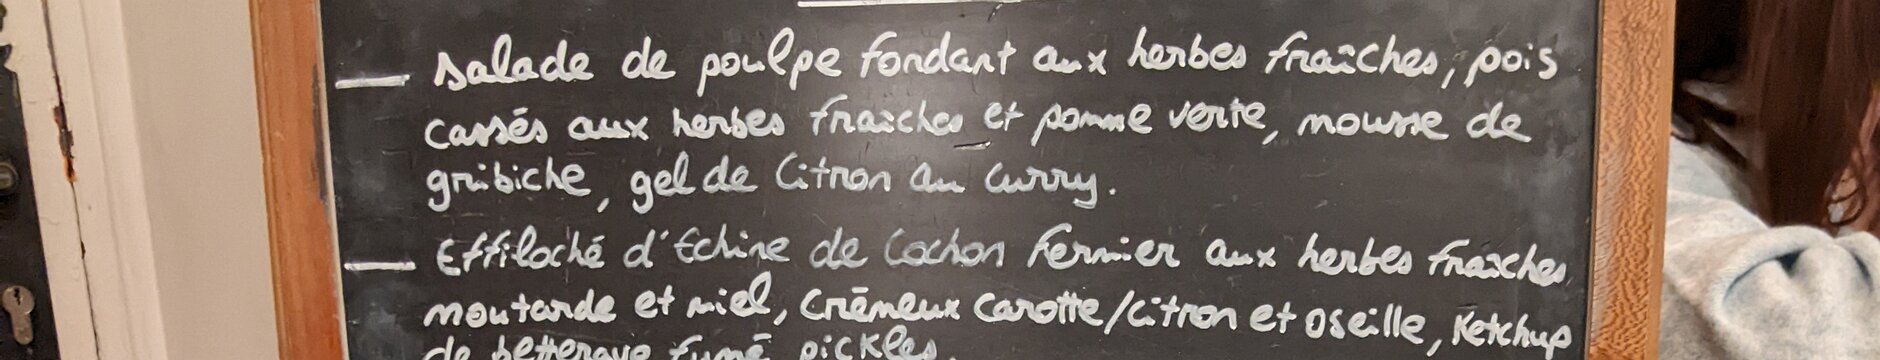 — Salade de poulpe fondant aux herbes fraîches, pois
cassés aux herbes fraîches et pomme verte, mousse de
gribiche, gel de Citron au Curry.
— Effiloché d'Echine de Cochon Fermier aux herbes fraîches
moutarde et miel, Crèmeux Carotte/Citron et oseille, Ketchup
de betterave fumé pickles.